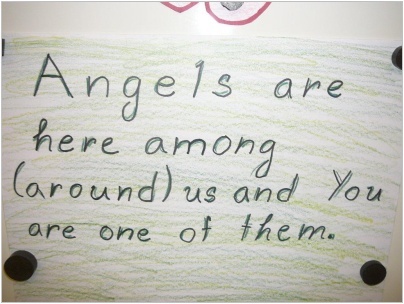 Angels are
here among
(around) us and You
are one of them.